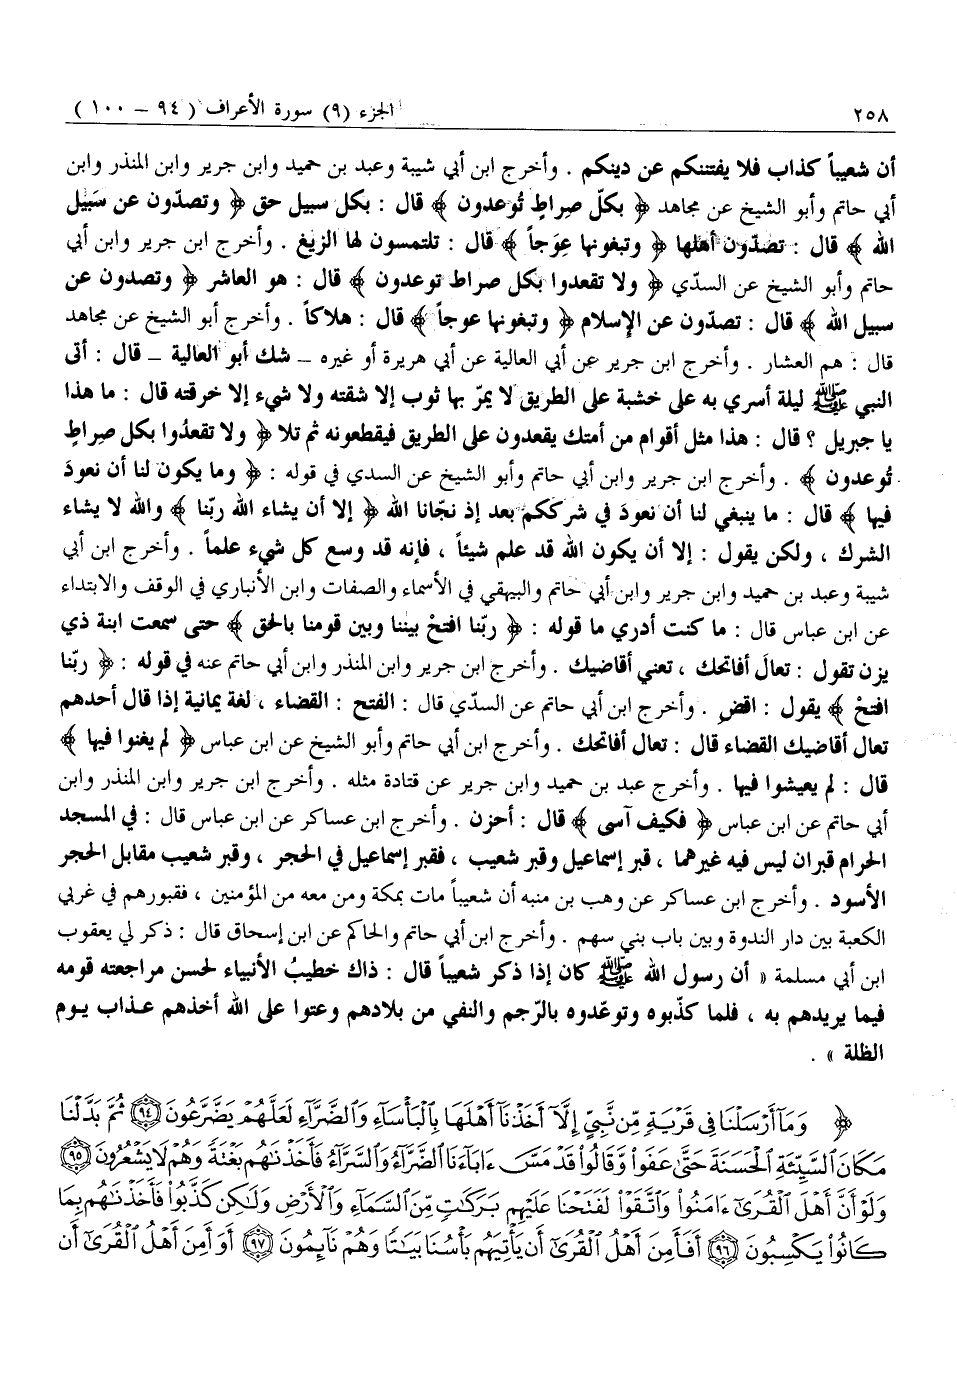 ٢٥٨ الجزء (٩) سورة الأعراف (٩٤ – ١٠٠)
أن شعيباً كذاب فلا يفتننكم عن دينكم . وأخرج ابن أبي شيبة وعبد بن حميد وابن جرير وابن المنذر وابن
أبي حاتم وأبو الشيخ عن مجاهد ﴿ بكلّ صراطٍ تُوعدون ﴾ قال : بكل سبيل حق ﴿ وتصدّون عن سَبيل
الله ﴾ قال : تصدّون أهلها ﴿ وتبغونها عِوَجاً ﴾ قال : تلتمسون لها الزيغ . وأخرج ابن جرير وابن أبي
حاتم وأبو الشيخ عن السدّي ﴿ ولا تقعدوا بكل صراط توعدون ﴾ قال : هو العاشر ﴿ وتصدون عن
سبيل الله ﴾ قال : تصدّون عن الإسلام ﴿ وتبغونها عوجاً ﴾ قال : هلاكاً . وأخرج أبو الشيخ عن مجاهد
قال : هم العشار . وأخرج ابن جرير عن أبي العالية عن أبي هريرة أو غيره – شك أبو العالية – قال : أتى
النبي ﷺ ليلة أسري به على خشبة على الطريق لا يمرّ بها ثوب إلا شقته ولا شيء إلا خرقته قال : ما هذا
يا جبريل ؟ قال : هذا مثل أقوام من أمتك يقعدون على الطريق فيقطعونه ثم تلا ﴿ ولا تقعدُوا بكل صِراطٍ
تُوعدون ﴾ . وأخرج ابن جرير وابن أبي حاتم وأبو الشيخ عن السدي في قوله : ﴿ وما يكون لنا أن نعودَ
فيها ﴾ قال : ما ينبغي لنا أن نعودَ في شرككم بعد إذ نجّانا الله ﴿ إلا أن يشاء الله ربّنا ﴾ والله لا يشاء
الشرك ، ولكن يقول : إلا أن يكون الله قد علم شيئاً ، فإنه قد وسع كل شيء علماً . وأخرج ابن أبي
شيبة وعبد بن حميد وابن جرير وابن أبي حاتم والبيهقي في الأسماء والصفات وابن الأنباري في الوقف والابتداء
عن ابن عباس قال : ما كنت أدري ما قوله : ﴿ ربّنا افتحْ بيننا وبين قومنا بالحق ﴾ حتى سمعت ابنة ذي
يزن تقول : تعالَ أفاتحك ، تعني أقاضيك . وأخرج ابن جرير وابن المنذر وابن أبي حاتم عنه في قوله : ﴿ ربّنا
افتحْ ﴾ يقول : اقضِ . وأخرج ابن أبي حاتم عن السدّي قال : الفتح : القضاء ، لغة يمانية إذا قال أحدهم
تعال أقاضيك القضاء قال : تعال أفاتحك . وأخرج ابن أبي حاتم وأبو الشيخ عن ابن عباس ﴿ لم يغنوا فيها ﴾
قال : لم يعيشوا فيها . وأخرج عبد بن حميد وابن جرير عن قتادة مثله . وأخرج ابن جرير وابن المنذر وابن
أبي حاتم عن ابن عباس ﴿ فكيف آسى ﴾ قال : أحزن . وأخرج ابن عساكر عن ابن عباس قال : في المسجد
الحرام قبران ليس فيه غيرهما ، قبر إسماعيل وقبر شعيب ، فقبر إسماعيل في الحجر ، وقبر شعيب مقابل الحجر
الأسود . وأخرج ابن عساكر عن وهب بن منبه أن شعيباً مات بمكة ومن معه من المؤمنين ، فقبورهم في غربي
الكعبة بين دار الندوة وبين باب بني سهم . وأخرج ابن أبي حاتم والحاكم عن ابن إسحاق قال : ذكر لي يعقوب
ابن أبي مسلمة « أن رسول الله ﷺ كان إذا ذكر شعيباً قال : ذاك خطيبُ الأنبياء لحسن مراجعته قومه
فيما يريدهم به ، فلما كذّبوه وتوعّدوه بالرّجم والنفي من بلادهم وعتوا على الله أخذهم عذاب يوم
الظلة » .
﴿ وَمَآ أَرْسَلْنَا فِى قَرْيَةٍ مِّن نَّبِىٍّ إِلَّآ أَخَذْنَآ أَهْلَهَا بِالْبَأْسَآءِ وَالضَّرَّآءِ لَعَلَّهُمْ يَضَّرَّعُونَ ٩٤ ثُمَّ بَدَّلْنَا
مَكَانَ السَّيِّئَةِ الْحَسَنَةَ حَتَّىٰ عَفَوا وَّقَالُوا۟ قَدْ مَسَّ ءَابَآءَنَا الضَّرَّآءُ وَالسَّرَّآءُ فَأَخَذْنَٰهُم بَغْتَةً وَهُمْ لَا يَشْعُرُونَ ٩٥
وَلَوْ أَنَّ أَهْلَ الْقُرَىٰٓ ءَامَنُوا۟ وَاتَّقَوْا۟ لَفَتَحْنَا عَلَيْهِم بَرَكَٰتٍ مِّنَ السَّمَآءِ وَالْأَرْضِ وَلَٰكِن كَذَّبُوا۟ فَأَخَذْنَٰهُم بِمَا
كَانُوا۟ يَكْسِبُونَ ٩٦ أَفَأَمِنَ أَهْلُ الْقُرَىٰٓ أَن يَأْتِيَهُم بَأْسُنَا بَيَٰتًا وَهُمْ نَآئِمُونَ ٩٧ أَوَ أَمِنَ أَهْلُ الْقُرَىٰٓ أَن